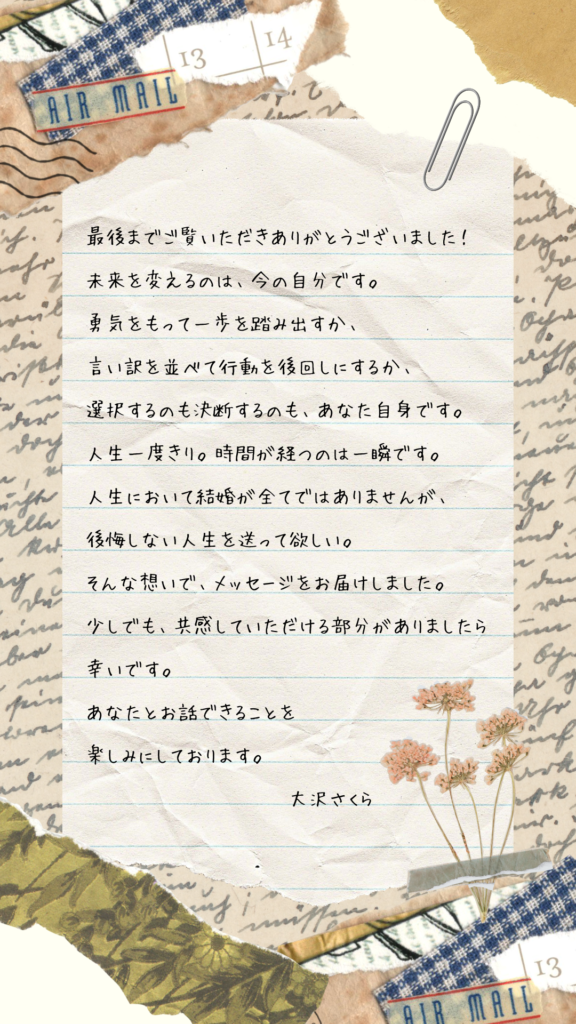 13 14
AIR MAIL
最後までご覧いただきありがとうございました!
未来を変えるのは、今の自分です。
勇気をもって一歩を踏み出すか、
言い訳を並べて行動を後回しにするか、
選択するのも決断するのも、あなた自身です。
人生一度きり。時間が経つのは一瞬です。
人生において結婚が全てではありませんが、
後悔しない人生を送って欲しい。
そんな想いで、メッセージをお届けしました。
少しでも、共感していただける部分がありましたら
幸いです。
あなたとお話できることを
楽しみにしております。
大沢さくら
13
AIR MAIL